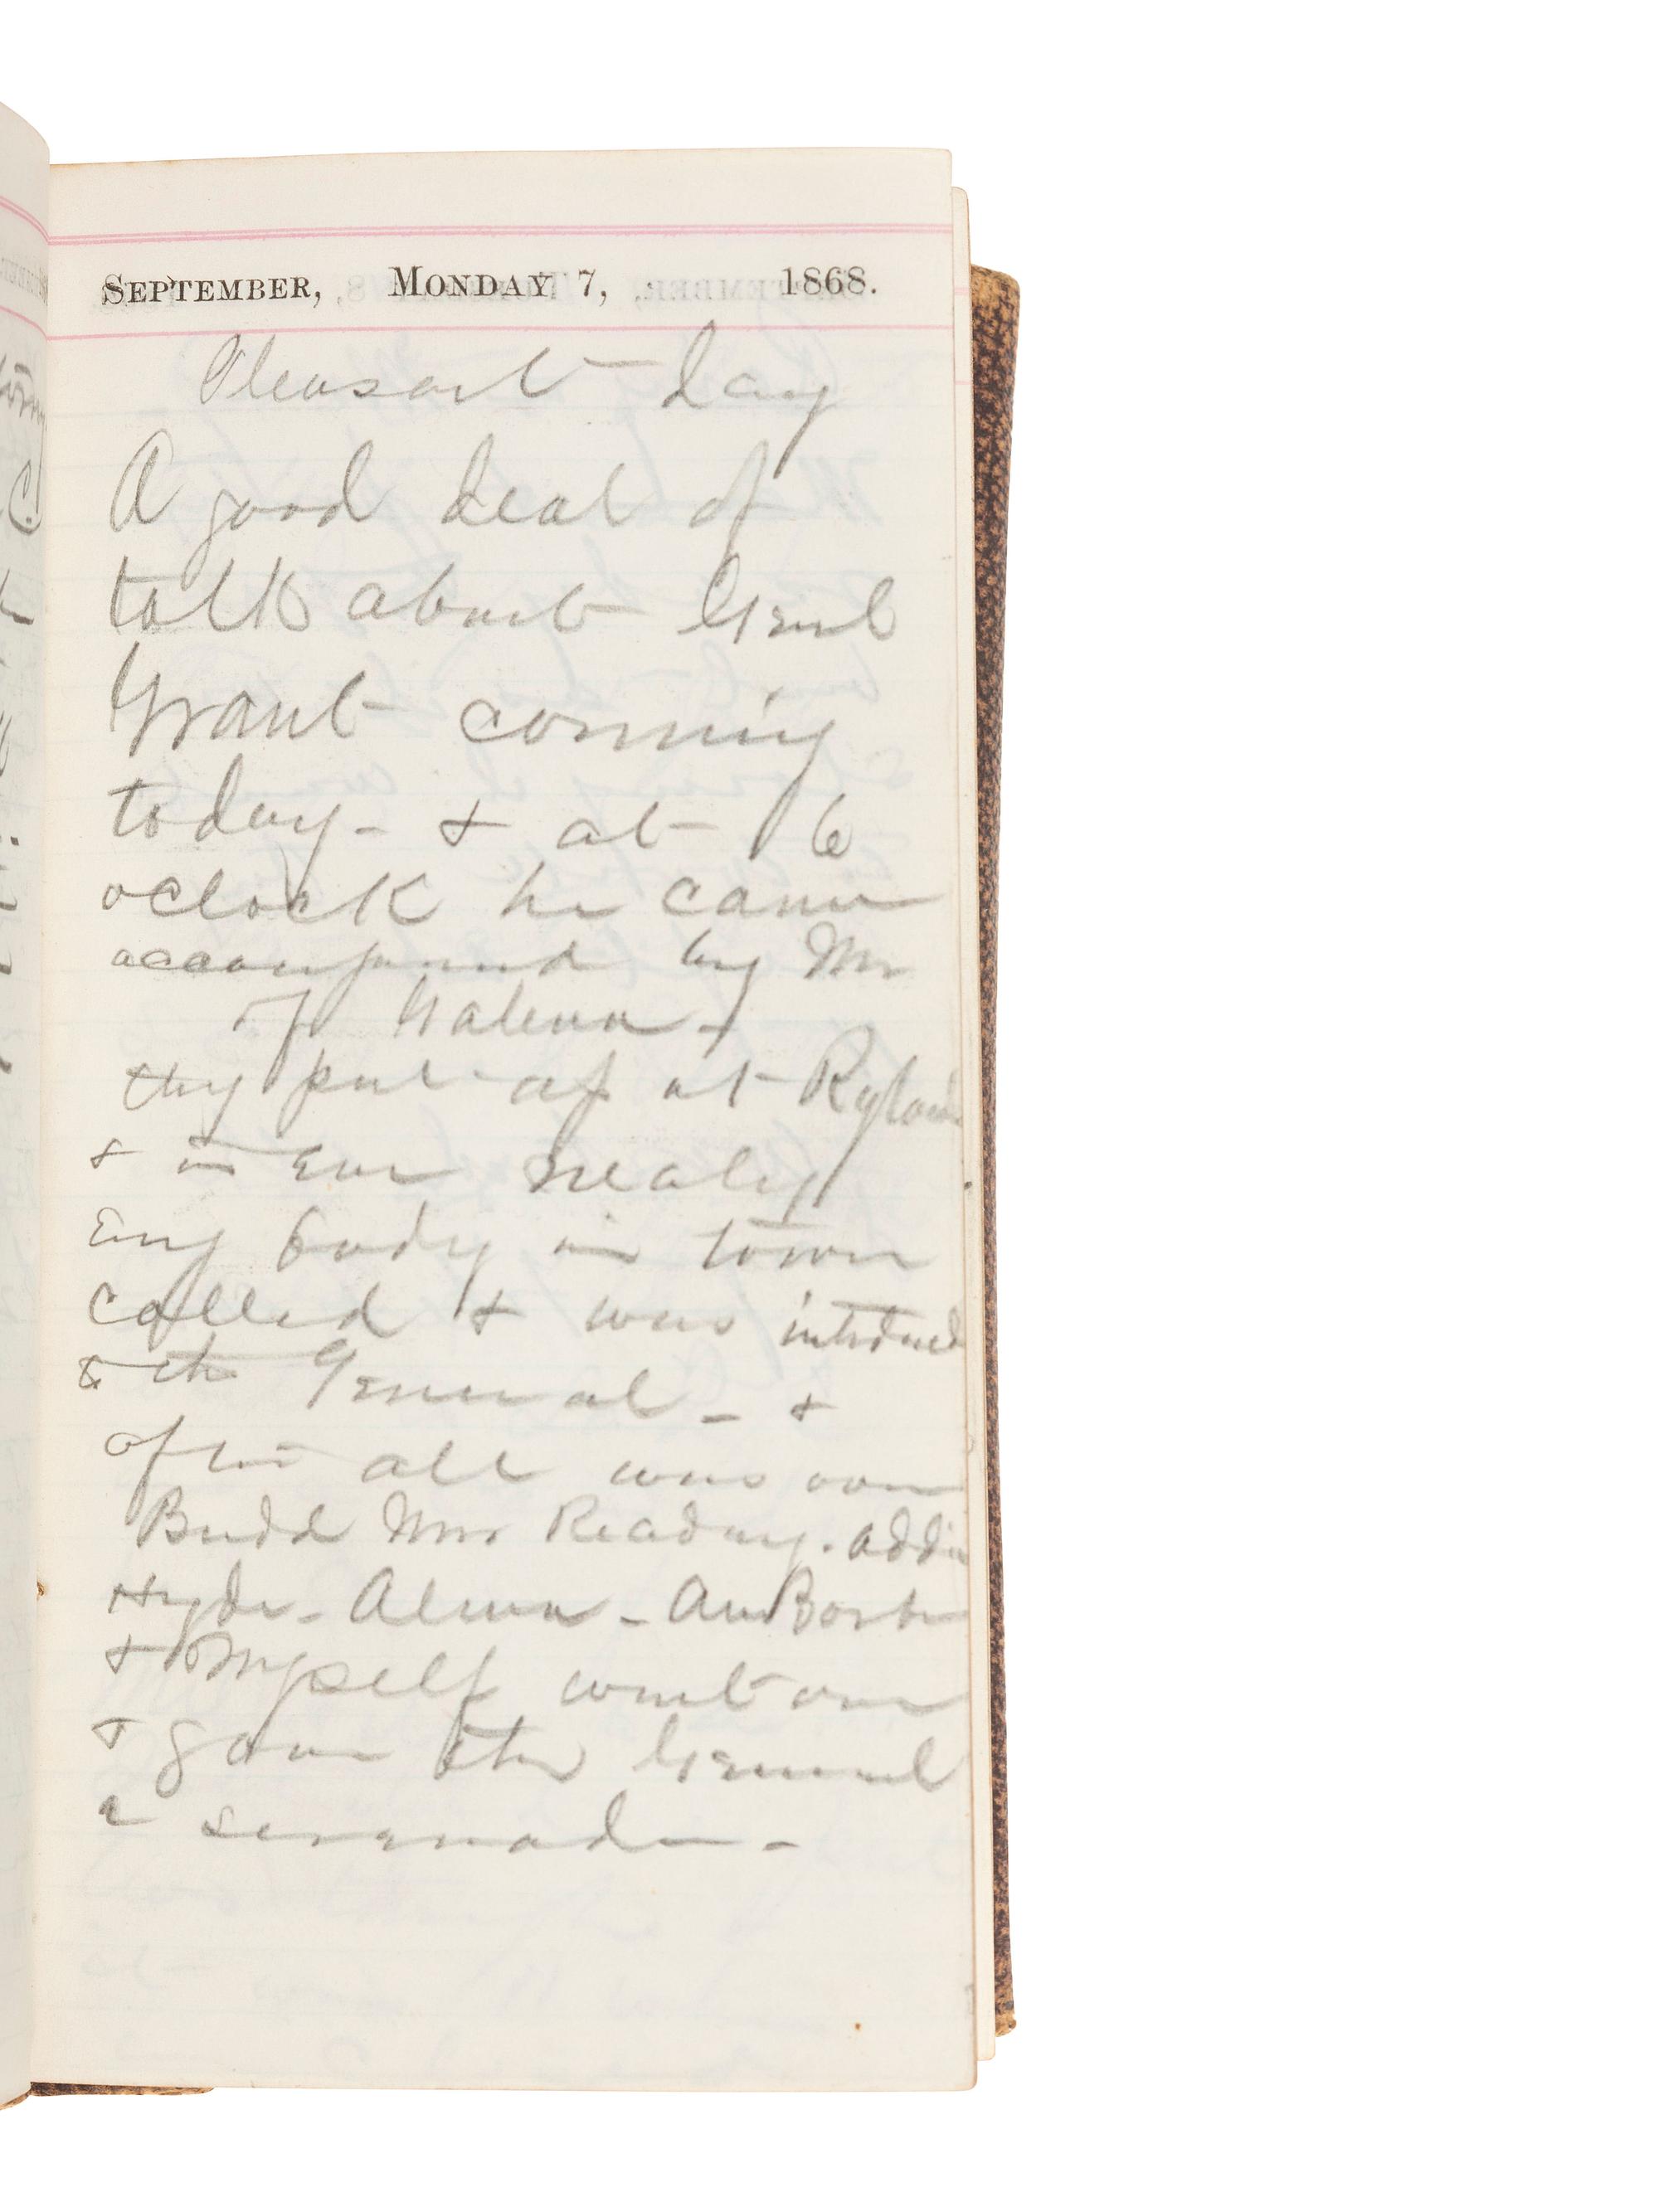 September, Monday 7, 1868.
Pleasant day
A good deal of
talk about Genl
Grant comming
today - & at 6
oclock he came
accompanied by Mr
of Galena -
they put up at Rylands
& in eve nealy
evry body in town
called & was introduced
to the General - &
after all was over
Budd Mrs Readay. Addie
Hyde - Alma -
& Myself went over
& gave the General
a serenade -